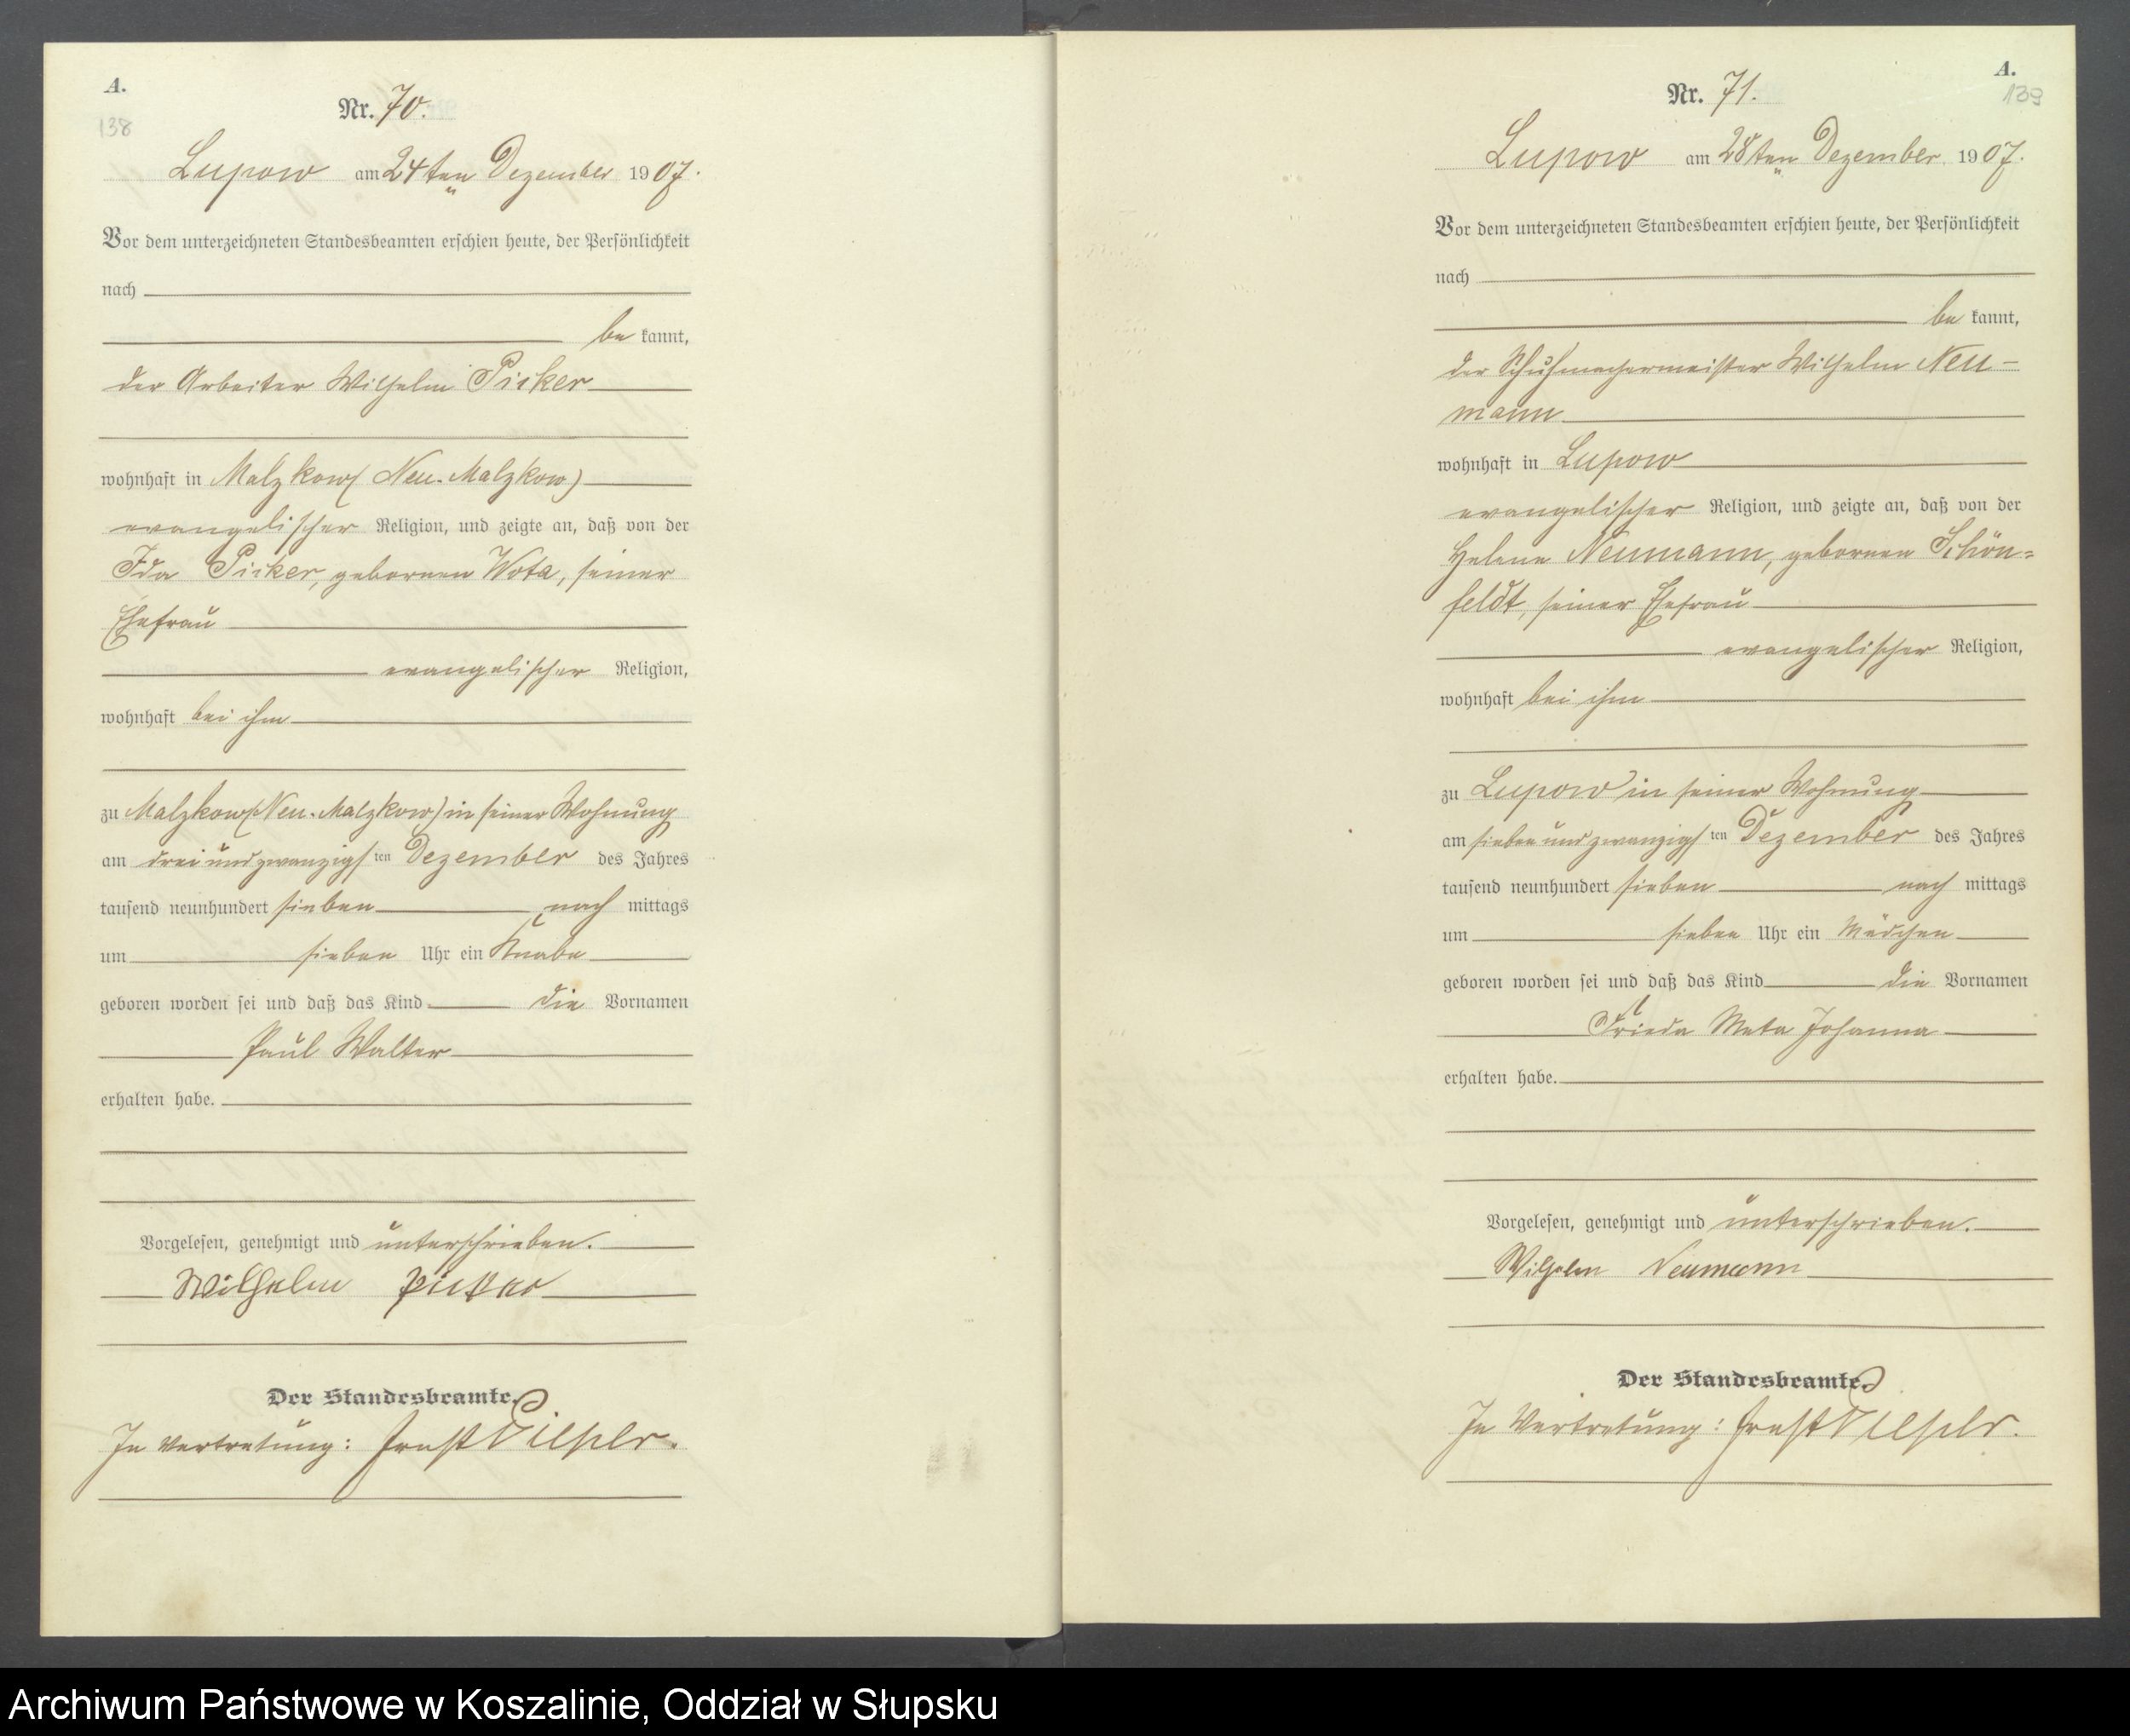 A.
138
Nr. 70.
Lupow am 24ten Dezember 1907.
Vor dem unterzeichneten Standesbeamten erschien heute, der Persönlichkeit
nach
be kannt,
der Arbeiter Wilhelm Picker
wohnhaft in Malzkow (Neu-Malzkow)
evangelischer Religion, und zeigte an, daß von der
Ida Picker, geborenen Wota, seiner
Ehefrau
evangelischer Religion,
wohnhaft bei ihm
zu Malzkow (Neu-Malzkow) in seiner Wohnung
am drei und zwanzigsten Dezember des Jahres
tausend neunhundert sieben nach mittags
um sieben Uhr ein Knabe
geboren worden sei und daß das Kind die Vornamen
Paul Walter
erhalten habe.
Vorgelesen, genehmigt und unterschrieben.
Wilhelm Picker
Der Standesbeamte.
In Vertretung: Ernst
A.
139
Nr. 71.
Lupow am 28ten Dezember 1907.
Vor dem unterzeichneten Standesbeamten erschien heute, der Persönlichkeit
nach
be kannt,
der Schuhmachermeister Wilhelm Neu-
mann
wohnhaft in Lupow
evangelischer Religion, und zeigte an, daß von der
Helene Neumann, geborenen Schön=
feldt, seiner Ehefrau
evangelischer Religion,
wohnhaft bei ihm
zu Lupow in seiner Wohnung
am sieben und zwanzigsten Dezember des Jahres
tausend neunhundert sieben nach mittags
um sieben Uhr ein Mädchen
geboren worden sei und daß das Kind die Vornamen
Frieda Meta Johanna
erhalten habe.
Vorgelesen, genehmigt und unterschrieben.
Wilhelm Neumann
Der Standesbeamte.
In Vertretung: Ernst
Archiwum Państwowe w Koszalinie, Oddział w Słupsku